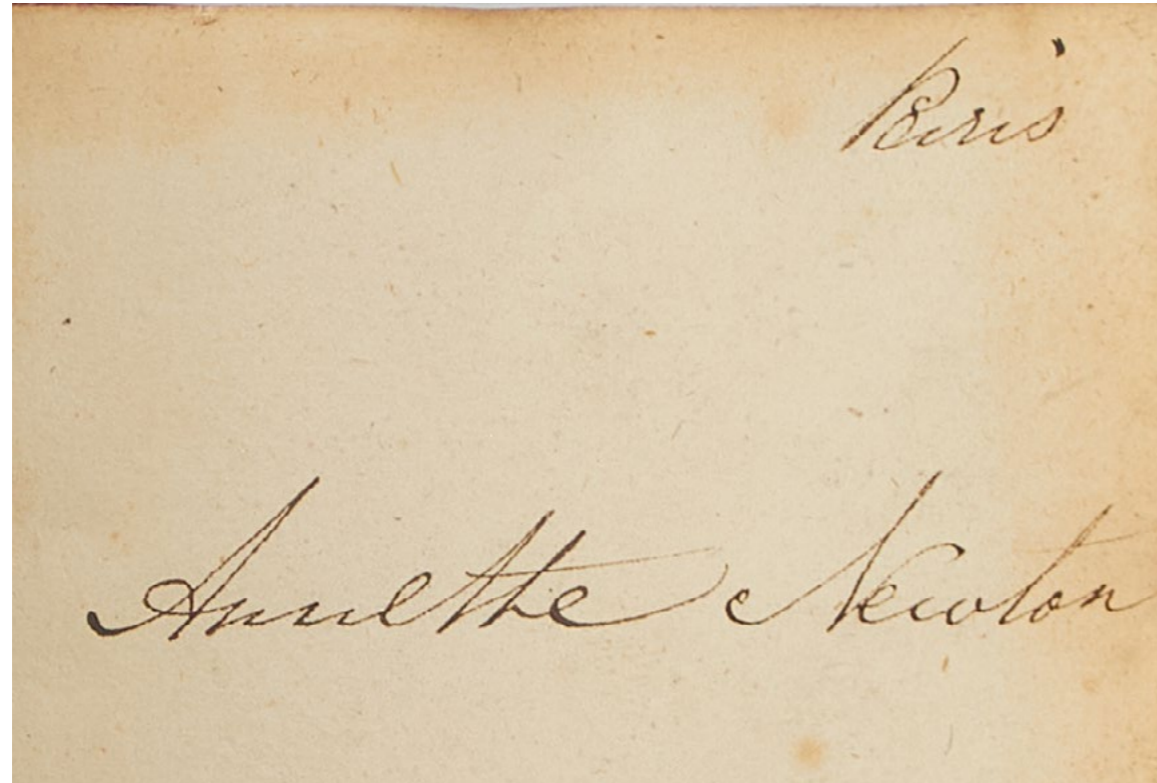 Paris
Annette Newton